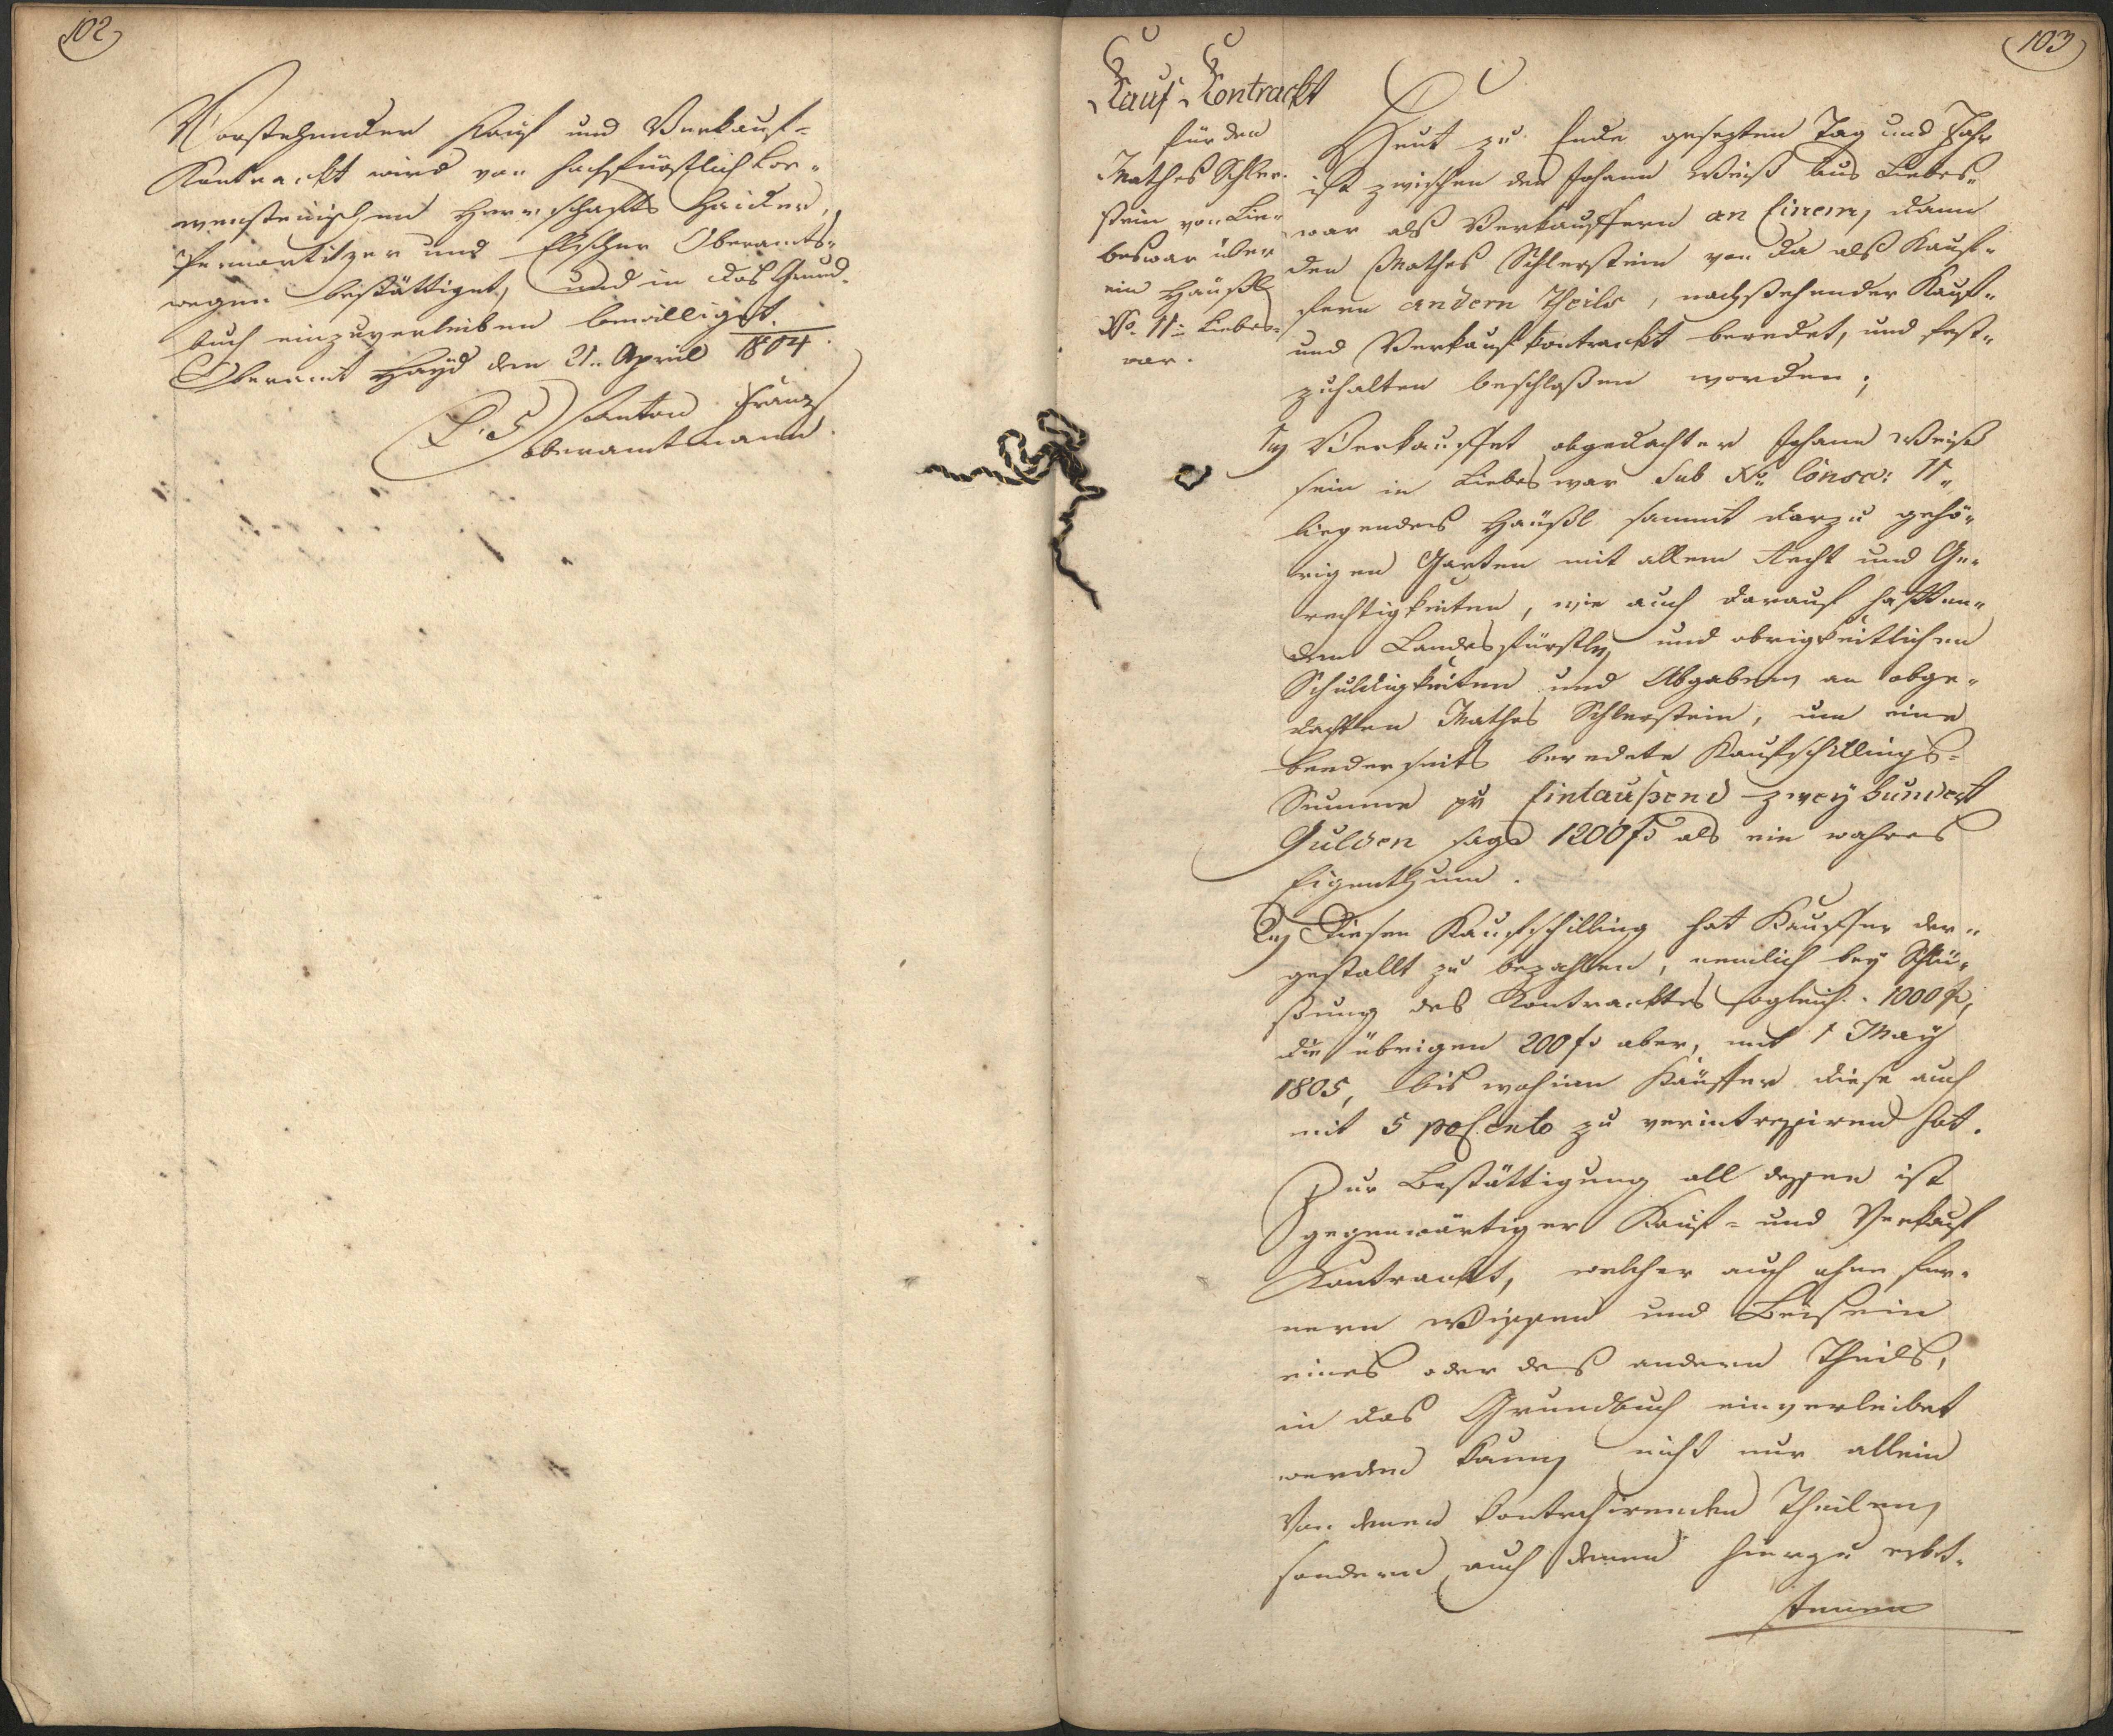 102
Vorstehender Kauf und Verkauf-
Kontrackt wird von hochfürstlich Loe-
wensteinischen Herrschafts Haider,
Pernartitzer und Elscher Oberamts-
wegen bestättiget, und in das Grund-
buch einzuverleiben bewilliget.
Oberamt Hayd den 21. April 1804.
L. S. Anton Franz
Oberamtmann.
103
Kauf Kontrackt
für den
Mathes Schler-
stein von Lie-
beswar über
ein Häußl
No. 11: Liebes-
war.
Heut zu Ende gesezten Tag und Jahr
ist zwischen den Johann Weiß aus Liebes-
war alß Verkauffern an Einem, dann
den Mathes Schlerstein von da alß Kauf-
fern andern Theils, nachstehender Kauf-
und Verkauf kontrackt beredet, und fest-
zuhalten beschloßen worden;
1tens Verkauffet obgedachter Johann Weiß
sein in Liebeswar Sub No. Consc: 11.
liegendes Häußl sammt darzu gehö-
rigen Garten mit allem Recht und Ge-
rechtigkeiten, wie auch darauf haften-
den Landesfürstln und obrigkeitlichen
Schuldigkeiten und Abgaben, an obge-
dachten Mathes Schlerstein, um eine
beederseits beredete Kaufschillings-
Summe pr Eintaußend zweyhundert
Gulden sage 1200 fl als ein wahres
Eigenthum.
2tens Diesen Kaufschilling hat Kauffer der-
gestallt zu bezahlen, nemlich bey Schlü-
ßung des Kontracktes sogleich. 1000 fl,
die übrigen 200 fl aber, mit 1 May
1805, bis wohinn Käuffer diese auch
mit 5 pro Cento zu verintressiren hat.
Zur Bestättigung all dessen ist
gegenwärtiger Kauf- und Verkauf
Kontrackt, welcher auch ohne fer-
nern Wissen und Beisein
eines oder deß andern Theils,
in das Grundbuch einverleibet
werden kann, nicht nur allein
von denen kontrahirenden Theilen,
sondern auch denen hierzu erbet-
tenen